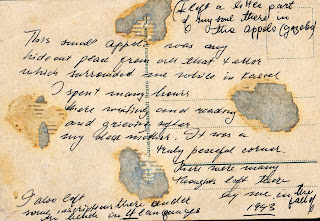 (I left a little part
of my soul there in
this appolo (gazebo)
This small appolo was my
hideout place from all that
which surrounded me while in Kassel
I spent many hours
there writing and reading
and grieving after
my mother. It was a
truly peaceful corner.
There were many
thoughts left there
by me in the
fall of
1993
I also left
some inscriptions there under
the bench in 4 languages